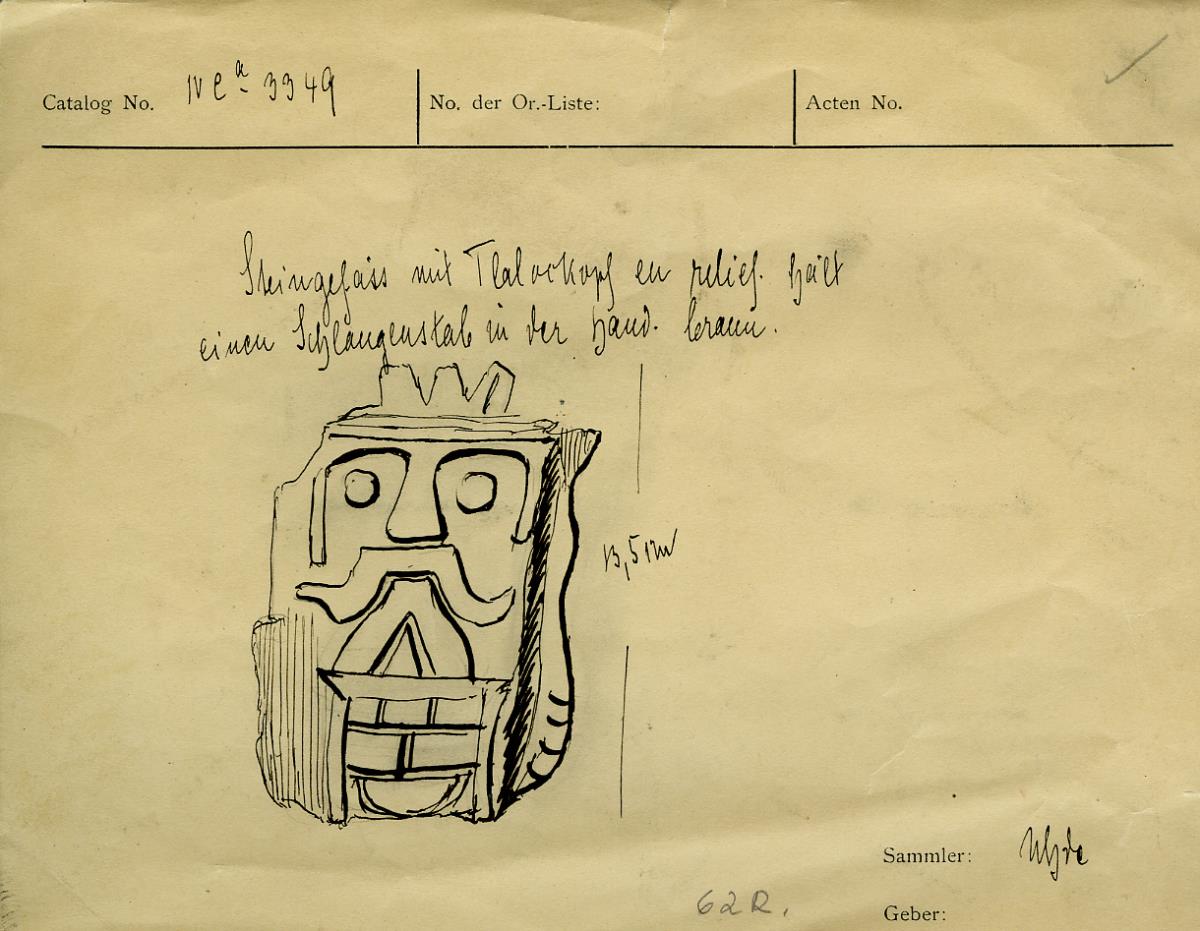 Catalog No. IV Ca 3349 No. der Or.-Liste: Acten No.
Steingefäss mit Tlalockopf en relief. hält
einen Schlangenstab in der Hand. braun.
13,5 cm
Sammler: Uhde
62R.
Geber: